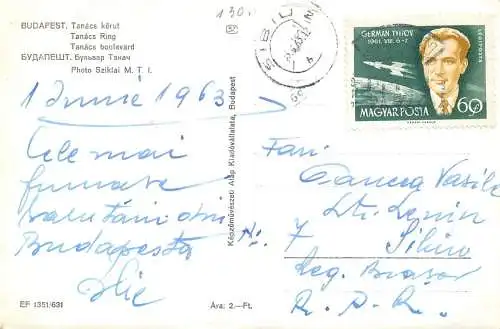 BUDAPEST. Tanács körut
Tanács Ring
Tanács boulevard
БУДАПЕШТ. Бульвар Танач
Photo Sziklai M. T. I.
1 Iunie 1963
Cele mai
frumoase
salutări din
Budapesta
Ilie
EF 1351/631
Ára: 2.—Ft.
Képzőművészeti Alap Kiadóvállalata, Budapest
130
SIBIU
GERMAN TYITOV
1961. VIII. 6-7.
LÉGIPOSTA
60 f
MAGYAR POSTA
Fam.
Oancea Vasile
Str. Lenin
Nr. 7
Sibiu
Reg. Brașov
R. P. R.